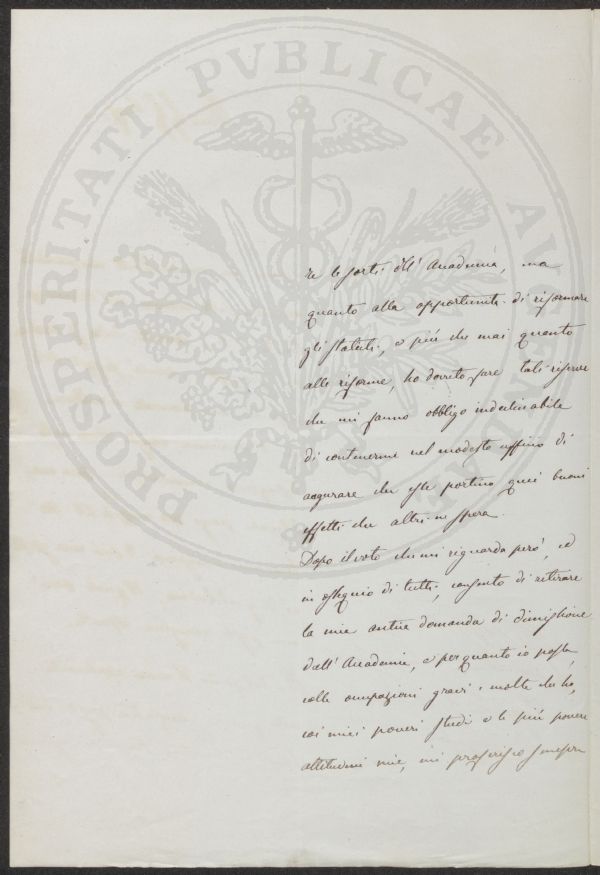 PROSPERITATI PVBLICAE AVGENDAE
re le sorti dell' Accademia, ma
quanto alla opportunità di riformare
gli statuti, e più che mai quanto
alle riforme, ho dovuto fare tali riserve
che mi fanno obbligo indeclinabile
di contenermi nel modesto uffizio di
augurare che esse portino quei buoni
effetti che altri ne spera.
Dopo il voto che mi riguarda però, ed
in ossequio di tutti, consento di ritirare
la mia antica domanda di dimissione
dall' Accademia, e per quanto io possa,
colle occupazioni gravi e molte che ho,
coi miei poveri studi e le più povere
attitudini mie, mi professo sempre